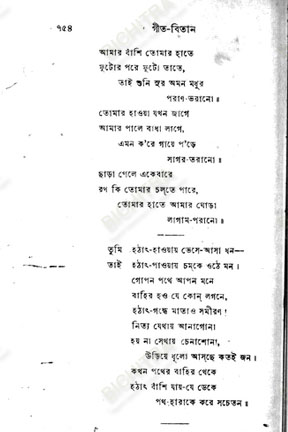 ৭৫৪ গীত-বিতান
আমার বাঁশি তোমার হাতে
ফুটোর পরে ফুটো তাতে,
তাই শুনি সুর অমন মধুর
পরাণ-ভরানো॥
তোমার হাওয়া যখন জাগে
আমার পালে বাধা লাগে,
এমন ক'রে গায়ে প'ড়ে
সাগর-তরানো॥
ছাড়া পেলে একেবারে
রথ কি তোমার চল্‌তে পারে,
তোমার হাতে আমার ঘোড়া
লাগাম-পরানো॥
তুমি হঠাৎ-হাওয়ায় ভেসে-আসা ধন—
তাই হঠাৎ-পাওয়ায় চম্‌কে ওঠে মন।
গোপন পথে আপন মনে
বাহির হও যে কোন্ লগনে,
হঠাৎ-গন্ধে মাতাও সমীরণ!
নিত্য যেথায় আনাগোনা
হয় না সেথায় চেনাশোনা,
উড়িয়ে ধূলো আস্‌ছে কতই জন।
কখন পথের বাহির থেকে
হঠাৎ বাঁশি যায়-যে ডেকে
পথ-হারাকে করে সচেতন॥